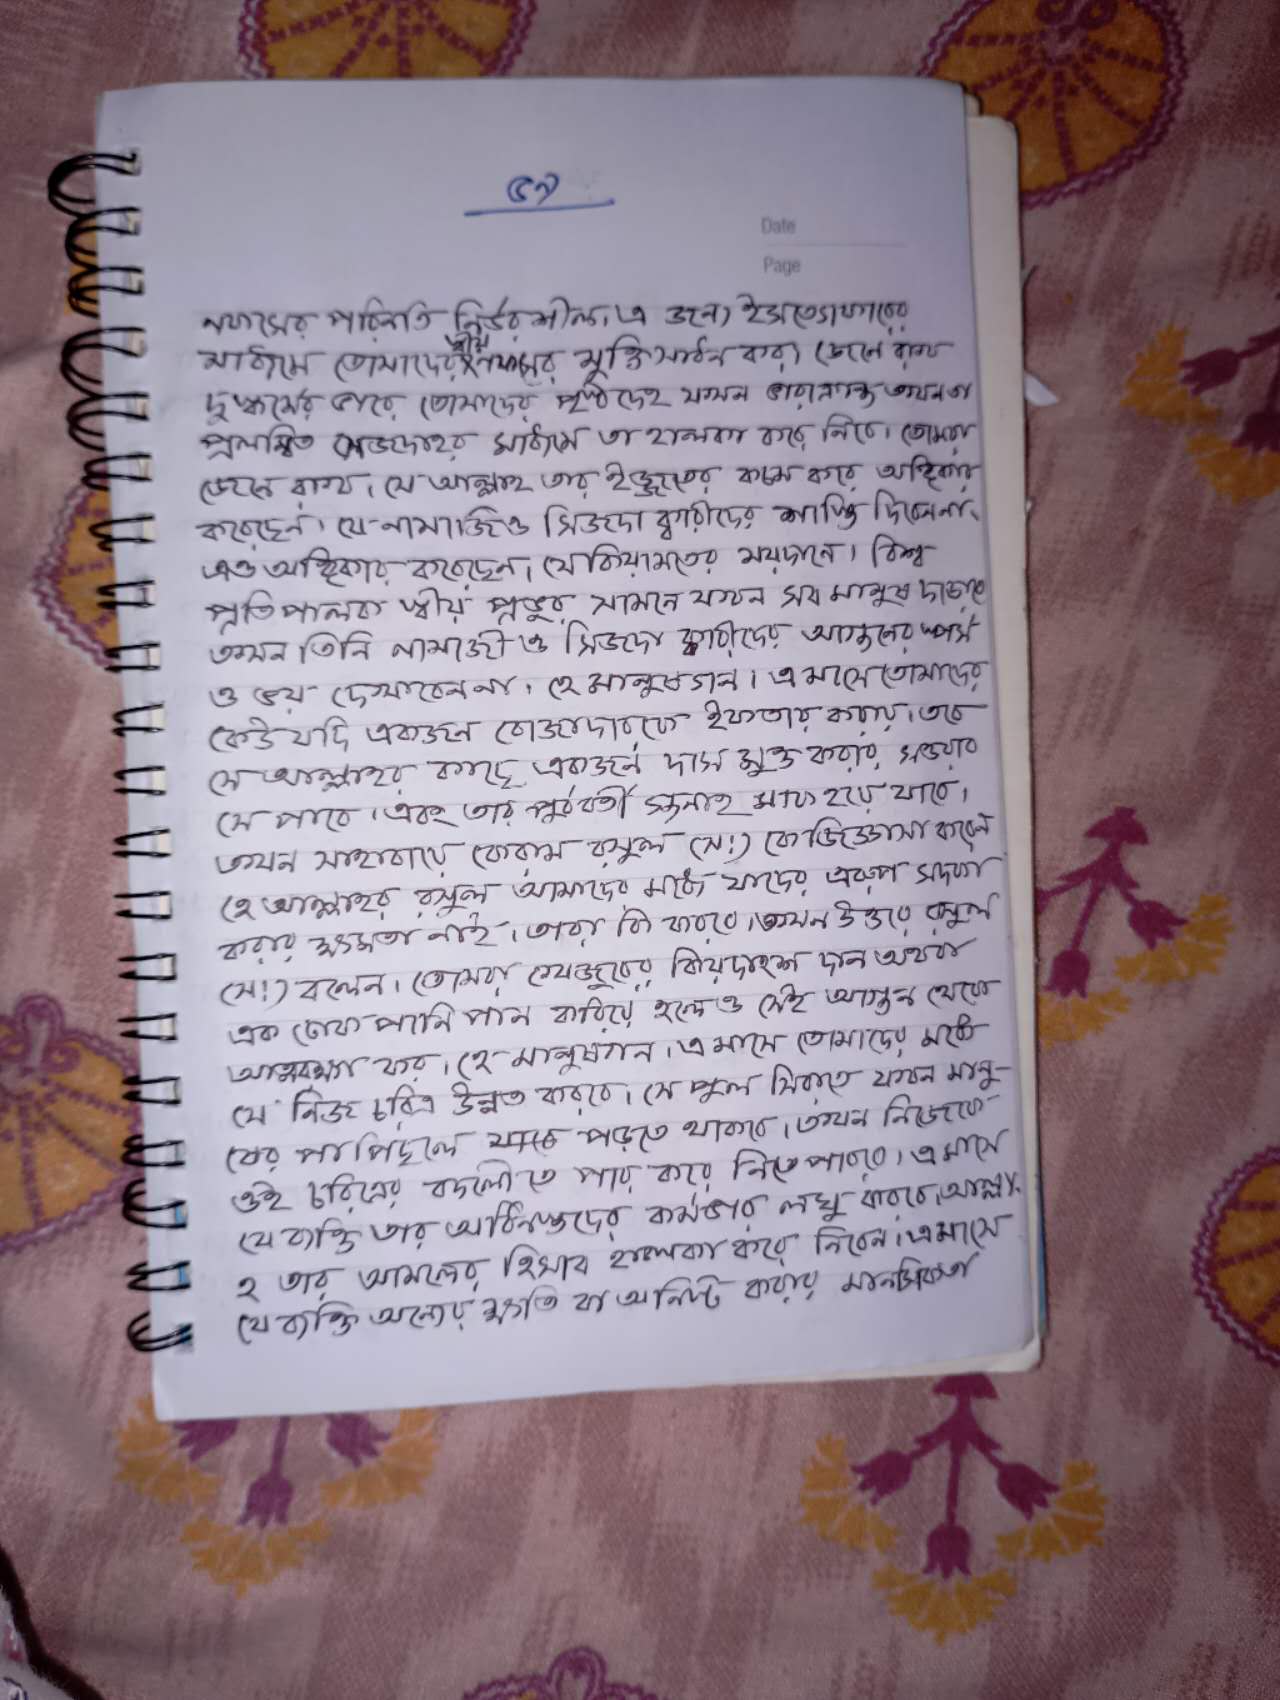 ৫৭
Date
Page
নফসের পরিনতি নির্ভরশীল। এ জন্যে ইস্তেগফারের
মাধ্যমে তোমাদের স্বীয় নফসের মুক্তি সাধন কর। জেনে রাখ
দুষ্কর্মের ভারে তোমাদের পৃষ্ঠদেহ যখন ভারাক্রান্ত তখন তা
প্রলম্বিত সেজদাহর মাধ্যমে তা হালকা করে নিবে। তোমরা
জেনে রাখ। যে আল্লাহ তার ইজ্জতের কসম করে অঙ্গিকার
করেছেন। যে নামাজি ও সিজদা কারীদের শাস্তি দিবেননা।
এও অঙ্গিকার করেছেন। যে কিয়ামতের ময়দানে। বিশ্ব
প্রতিপালক স্বীয় প্রভুর সামনে যখন সব মানুষ দাড়াবে
তখন তিনি নামাজী ও সিজদা কারীদের আগুনের স্পর্স
ও ভয় দেখাবেন না। হে মানুষগন। এ মাসে তোমাদের
কেউ যদি একজন রোজাদারকে ইফতার করায়। তবে
সে আল্লাহর কাছে একজন দাস মুক্ত করার সওয়াব
সে পাবে। এবং তার পূর্ববর্তী গুনাহ মাফ হয়ে যাবে।
তখন সাহাবায়ে কেরাম রসুল (স!) কে জিজ্ঞোসা করেন
হে আল্লাহর রসুল আমাদের মধ্যে যাদের এরূপ সদকা
করার ক্ষমতা নাই। তারা কি করবে। তখন উত্তরে রসুল
(স!) বলেন। তোমরা খেজুরের কিয়দাংশ দান অথবা
এক ঢোক পানি পান করিয়ে হলেও সেই আগুন থেকে
আত্মরক্ষা কর। হে মানুষগন। এ মাসে তোমাদের মধ্যে
যে নিজ চরিত্র উন্নত করবে। সে পুল সিরাতে যখন মানু-
ষের পা পিছলে পড়তে থাকবে। তখন নিজেকে
ওই চরিত্রের বদৌলতে পার করে নিতে পারবে। এ মাসে
যে ব্যক্তি তার অধিনস্তদের কর্মভার লঘু করবে। আল্লা-
হ তার আমলের হিসাব হালকা করে নিবেন। এ মাসে
যে ব্যক্তি অন্যের ক্ষতি বা অনিষ্ট করার মানসিকতা